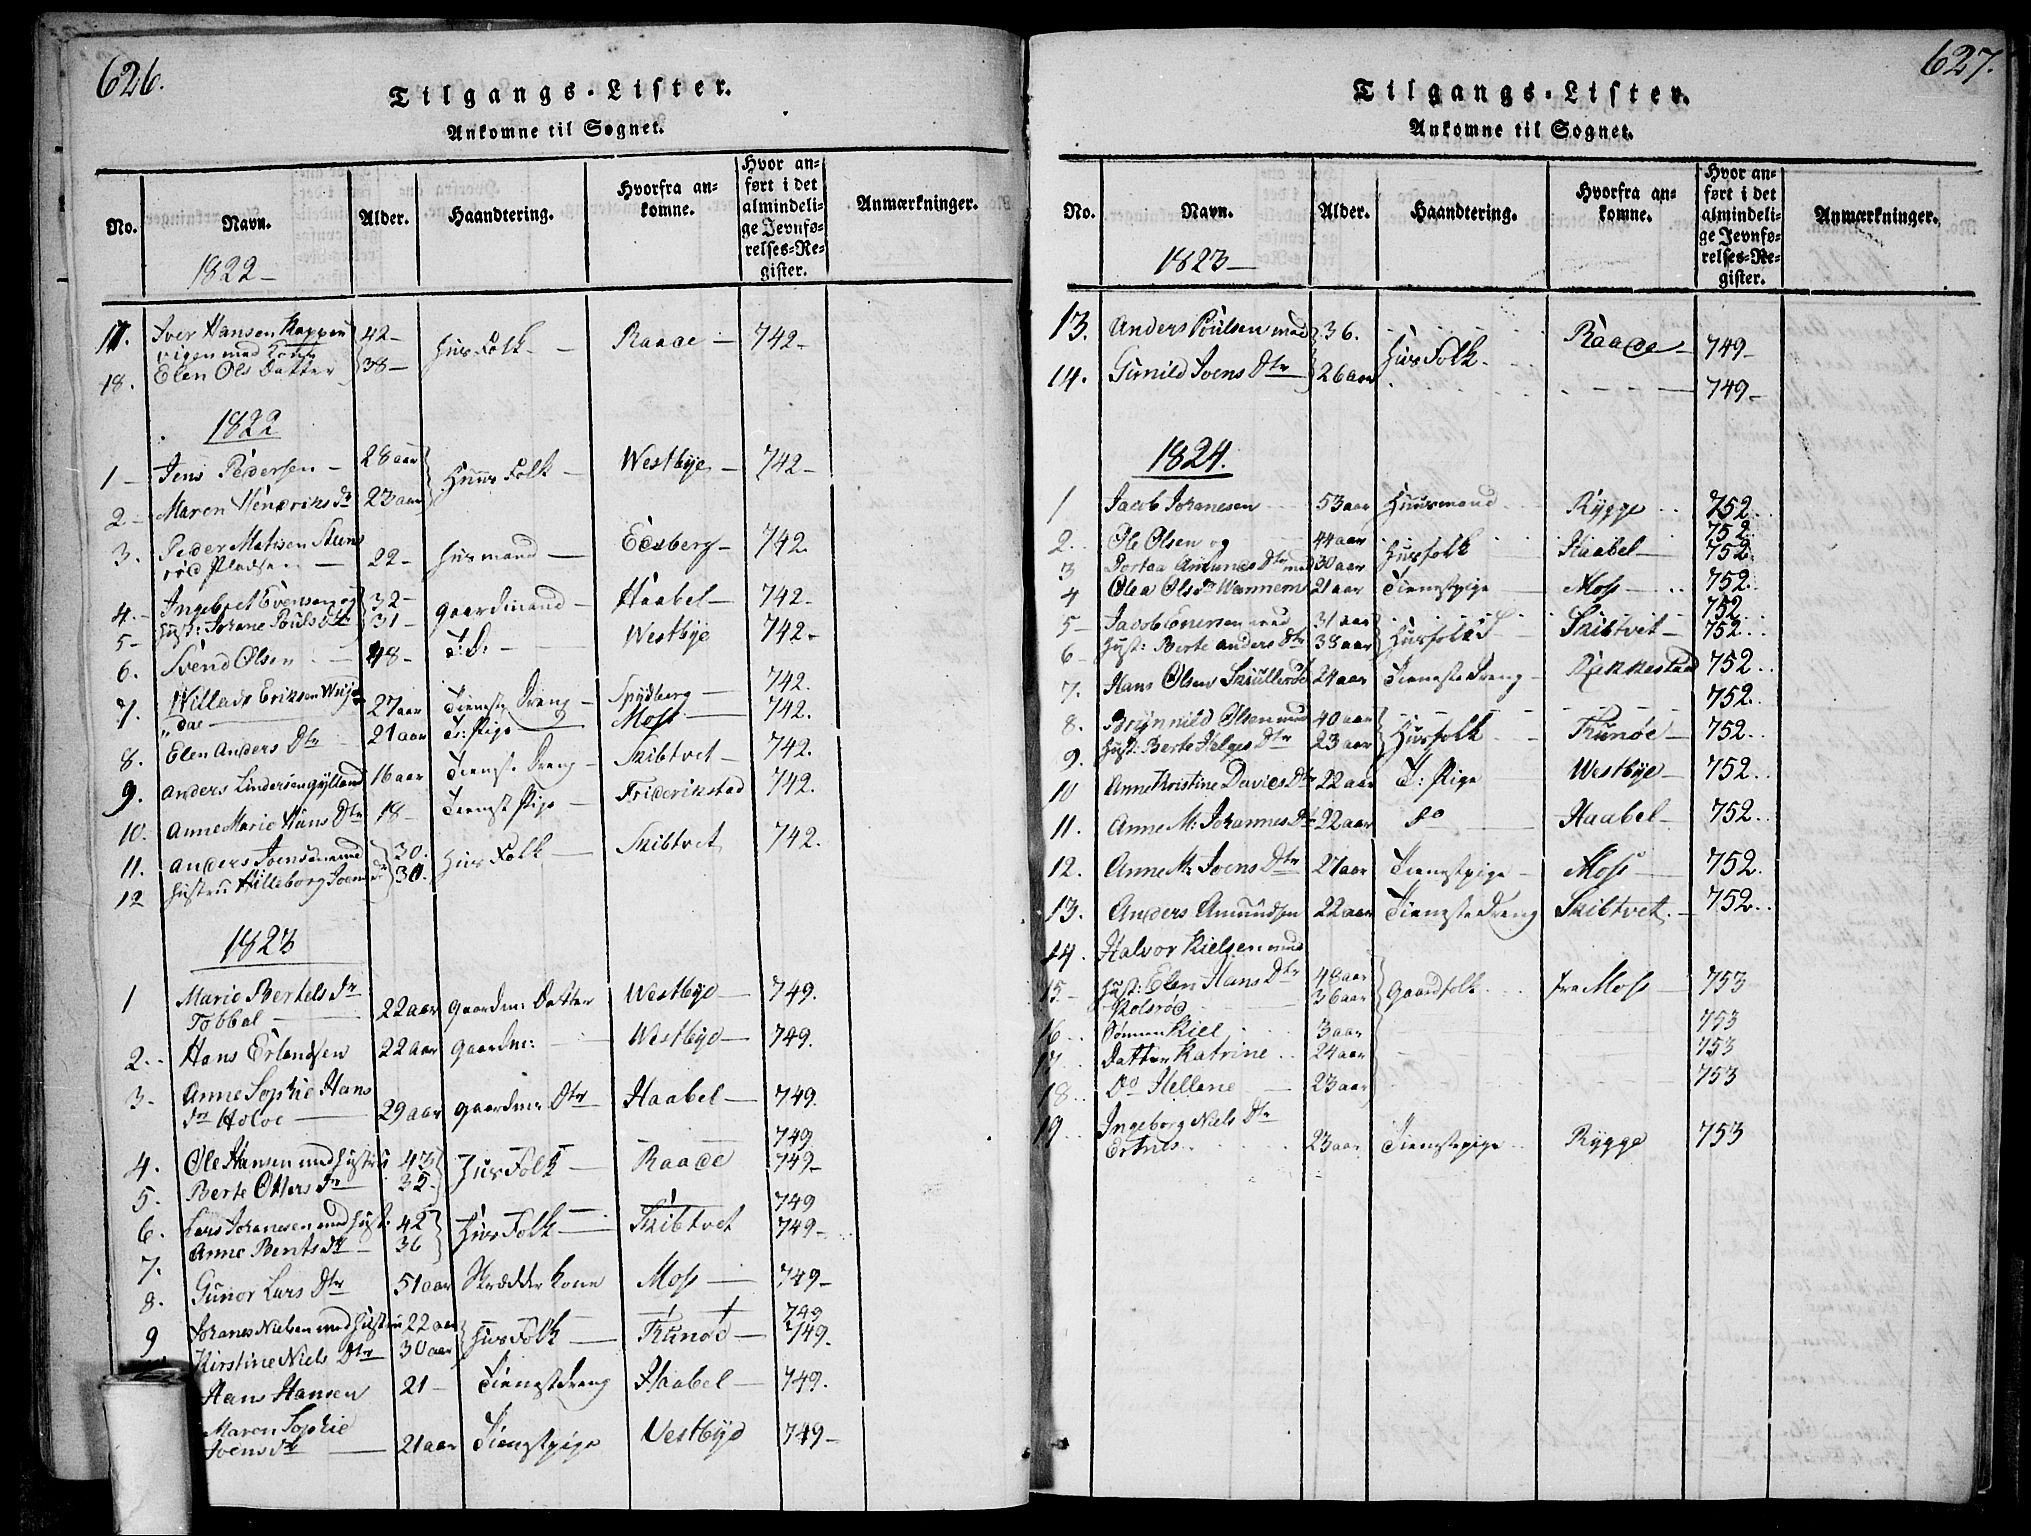 626.
Tilgangs-Lister.
Ankomne til Sognet.
No. Navn. Alder. Haandtering. Hvorfra ankomne. Hvor anført i det almindelige Jevnførelses-Register. Anmærkninger.
1822-
17. Iver Hansen 42-
vigen med Kone Huus Folk - Raade - 742-
18. Elen Ols Datter 38-
1822
1 - Jens Pedersen - 28 aar Huus Folk - Westbye - 742-
2 - Maren Hendriks dr 23 aar
3. Peder Matisen
rød Pladsen - 22- Husmand - Edsberg - 742.
4. Ingebret Evensen og 32- gaardmand - Haabel - 742.
5- Hust: Johane Pouls Dtr 31-
6. Svend Olsen - 48- D: - Westbye 742-
7. Willads Eriksen
dal - 27 aar Tieneste Dreng - Spydberg - 742.
8. Elen Anders Dtr 21 aar T: Pige - Moss - 742.
9. Anders Lindersen 16 aar Tienest Dreng - Skibtvet - 742.
10. Anne Marie Hans Dtr 18- Tienest Pige - Friderikstad 742.
11. Anders Svensen med 30. Hus Folk - Skibtvet 742.
12 Hustru Hilleborg dr 30.
1823
1 Marie Bertels dr
Tobbal - 22 aar gaardm: Datter Westbye - 749.
2. Hans Erlandsen 22 aar gaardm: Westbye - 749.
3. Anne Sophie Hans
dr Holve - 29 aar gaardm: Dtr Haabel - 749.
749
4. Ole Hansen med Hustru 43 Hus Folk - Raade 749-
5. Berte Otters dr 35-
749
6. Lars Johanesen med Hust: 42 Hus Folk - Skibtvet 749-
7. Anne Bents dr - 36
8. Gunor Lars Dtr 51 aar Skrædder kone Moss - 749-
749
9 Johanes Nielsen med Hustru 22 aar Hus Folk - Trunøe - 749.
Kirstine Niels Dtr 30 aar
Hans Hansen 21- Tienestdreng Haabel - 749.
Maren Sophie
Svens dr - 21 aar Tienestpige Vestbye 749-
627.
Tilgangs-Lister.
Ankomne til Sognet.
No. Navn. Alder. Haandtering. Hvorfra ankomne. Hvor anført i det almindelige Jevnførelses-Register. Anmærkninger.
1823-
13. Anders Poulsen med 36. Huus Folk. Raade - 749-
14. Gunild Svens Dtr 26 aar 749-
1824.
1 Jacob Johanesen 53 aar Huusmand Rygge 752.
752
2. Ole Olsen og 44 aar Husfolk Haabel - 752.
3 Dtr med 30 aar
4 Olea Ols dr 21 aar Tienestpige - Moss - 752.
752
5- Jacob med 31 aar Husfolk Skibtvet - 752.
6- Hust: Berte Anders Dtr 38 aar
7. Hans Olsen 24 aar Tieneste Dreng - Rakkestad 752.
752.
8. Brynnild Olsen med 40 aar Husfolk Trunøe - 752.
9. Hust: Berte Helges Dtr 23 aar
10 Anne Kristine Davids Dtr 22 aar T: Pige Westbye - 752.
11. Anne M: Johannes Dtr 22 aar Do - Haabel - 752.
12. Anne M: Svens Dtr 27 aar Tienestpige - Moss - 752.
13. Anders Amundsen 22 aar Tieneste Dreng Skibtvet. - 752.
14. Halvor Kielsen med
15- Hust: Elen Hans Dtr 48 aar gaardfolk fra Moss - 753
Skolsrød 36 aar
16 Sønnen Kiel 3 aar 753
17 Datter Katrine 24 aar 753
18 Do Hellene 23 aar 753
19 Ingeborg Niels Dtr
23 aar Tienestepige Rygge 753